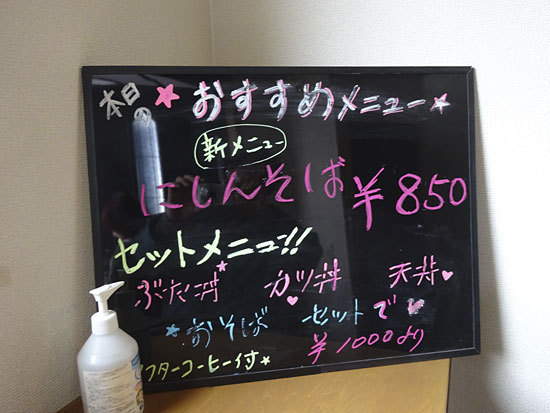 本日の★おすすめメニュー★
新メニュー
にしんそば ¥850
セットメニュー!!
ぶた丼 カツ丼 天丼♥
★おそば セットで♥
¥1000より
フターコーヒー付★